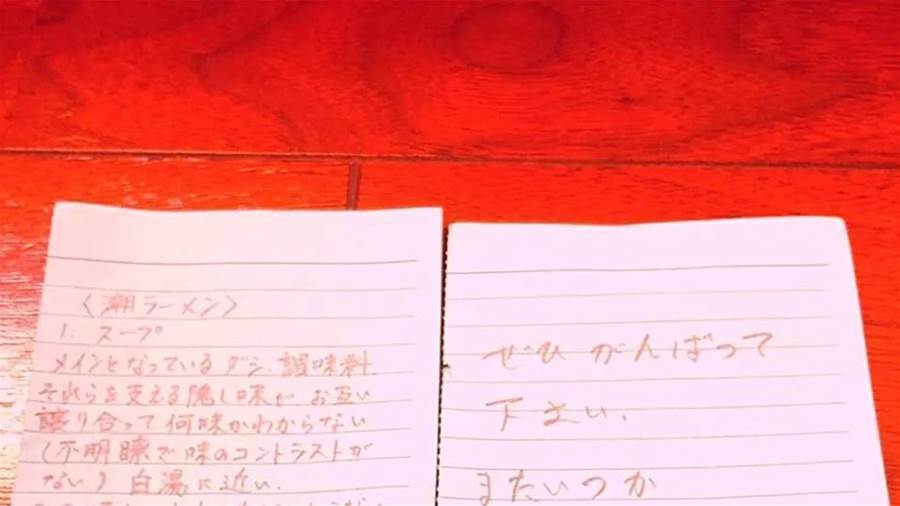 〈潮ラーメン〉
1. スープ
メインとなっているダシ、調味料、
それらを支える隠し味が、お互い
譲り合って何味かわからない
(不明瞭で味のコントラストが
ない) 白湯に近い.
ぜひ がんばって
下さい.
またいつか